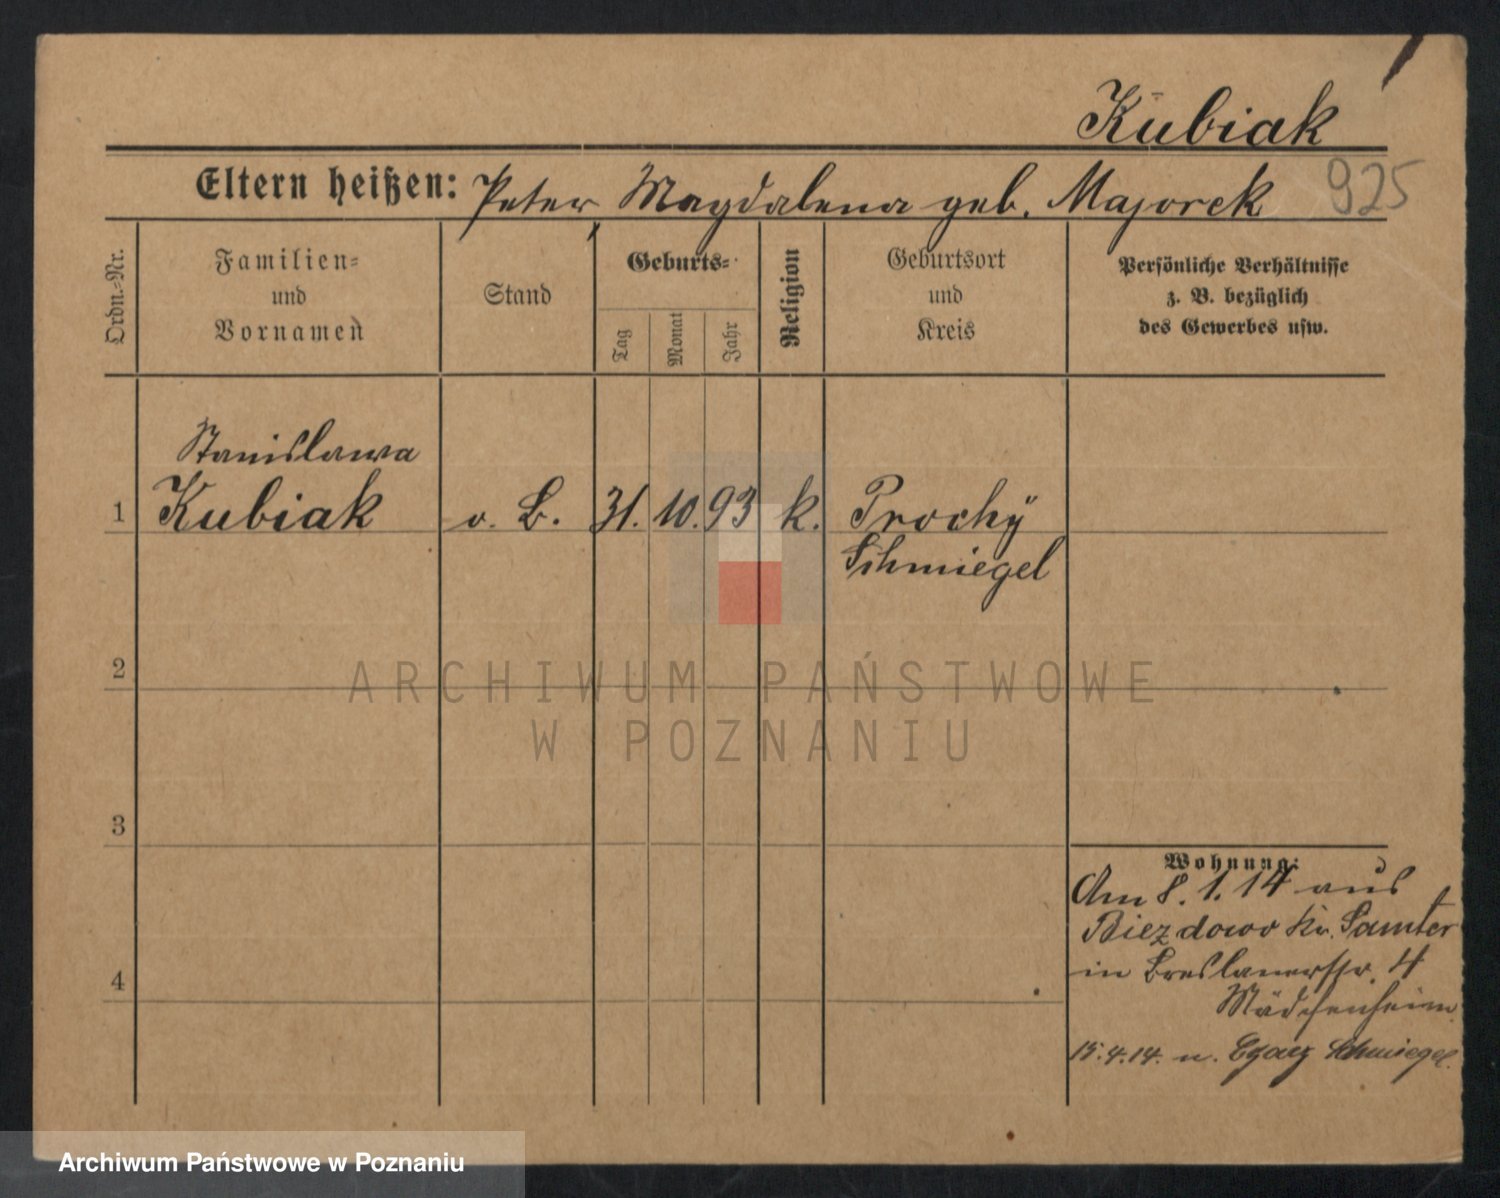 Kubiak
Eltern heißen: Peter, Magdalena geb. Majorek 925
Ordn.-Nr.
Familien-
und
Vornamen
Stand
Geburts-
Tag
Monat
Jahr
Religion
Geburtsort
und
Kreis
Persönliche Verhältnisse
z. B. bezüglich
des Gewerbes usw.
Stanislawa
1 Kubiak v. B. 31. 10. 93 k. Prochÿ
Schmiegel
2
ARCHIWUM PAŃSTWOWE
W POZNANIU
3
Wohnung:
Am 8. 1. 14 aus
Biezdowo Kr. Samter
in Breslauerstr. 4
4
Mädchenheim
15.4.14. n. Czacz Schmiegel.
Archiwum Państwowe w Poznaniu